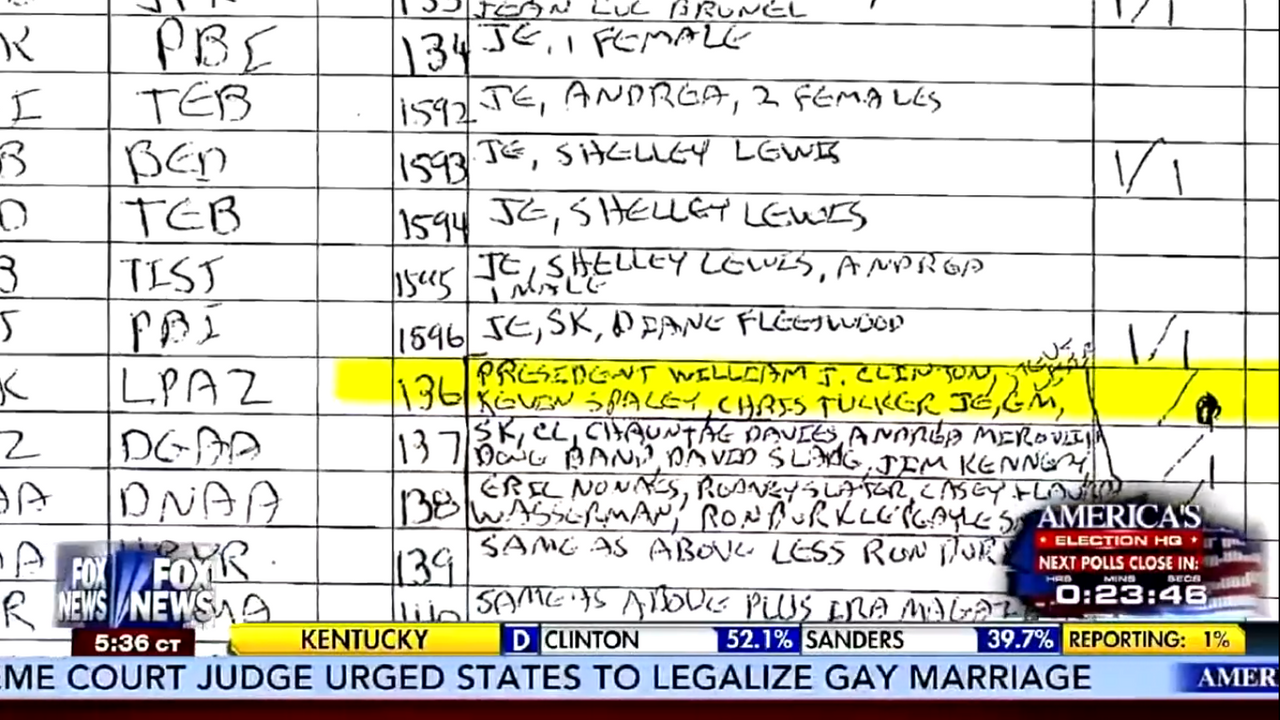 JEAN LUC BRUNEL
K PBI 134 JE, 1 FEMALE
I TEB 1592 JE, ANDREA, 2 FEMALES
B BED 1593 JE, SHELLEY LEWIS 1/1
D TEB 1594 JE, SHELLEY LEWIS
B TIST 1595 JE, SHELLEY LEWIS, ANDREA
1 MALE
J PBI 1596 JE, SK, DIANE FLEETWOOD 1/1
K LPAZ 136 PRESIDENT WILLIAM J. CLINTON,
KEVIN SPACEY, CHRIS TUCKER JE, GM,
Z DGAA 137 SK, CL, CHAUNTAE DAVIES, ANDREA
DOUG BAND, DAVID SLANG, JIM KENNEDY, /1
AA DNAA 138 ERIC NONACS, RODNEY SLATER, CASEY +
WASSERMAN, RON BURKLE
A 139 SAME AS ABOVE LESS RON BUR
R SAME AS ABOVE PLUS IRA
AMERICA'S
ELECTION HQ
NEXT POLLS CLOSE IN:
HRS MINS SECS
0:23:46
FOX NEWS
FOX NEWS
5:36 CT
KENTUCKY D CLINTON 52.1% SANDERS 39.7% REPORTING: 1%
EME COURT JUDGE URGED STATES TO LEGALIZE GAY MARRIAGE AMER